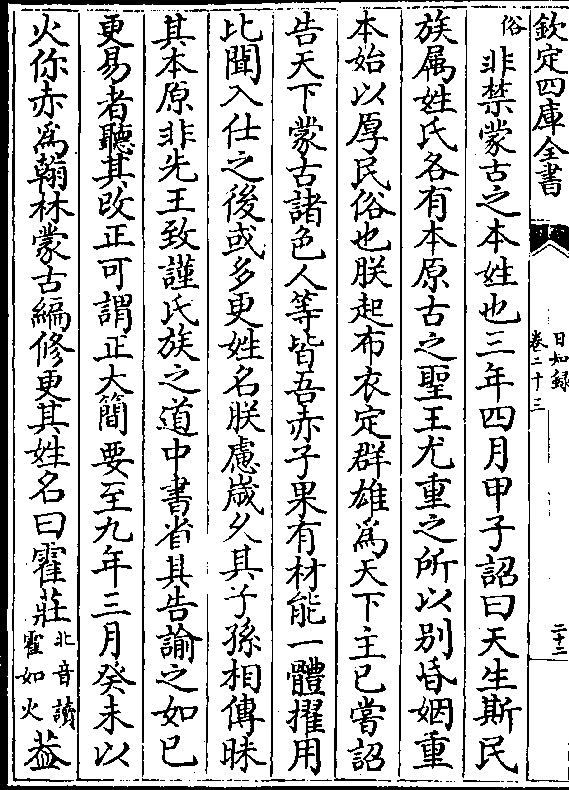 欽定四庫全書
日知錄
卷二十三
二十二
俗
非禁蒙古之本姓也三年四月甲子詔曰天生斯民
族属姓氏各有本原古之聖王尤重之所以别昏姻重
本始以厚民俗也朕起布衣定群雄為天下主已嘗詔
告天下蒙古諸色人等皆吾赤子果有材能一體擢用
比聞入仕之後或多更姓名朕慮歲久其子孫相傳昧
其本原非先王致謹氏族之道中書省其告諭之如已
更易者聽其改正可謂正大簡要至九年三月癸未以
火你赤為翰林蒙古編修更其姓名曰霍莊
北音讀
霍如火
葢